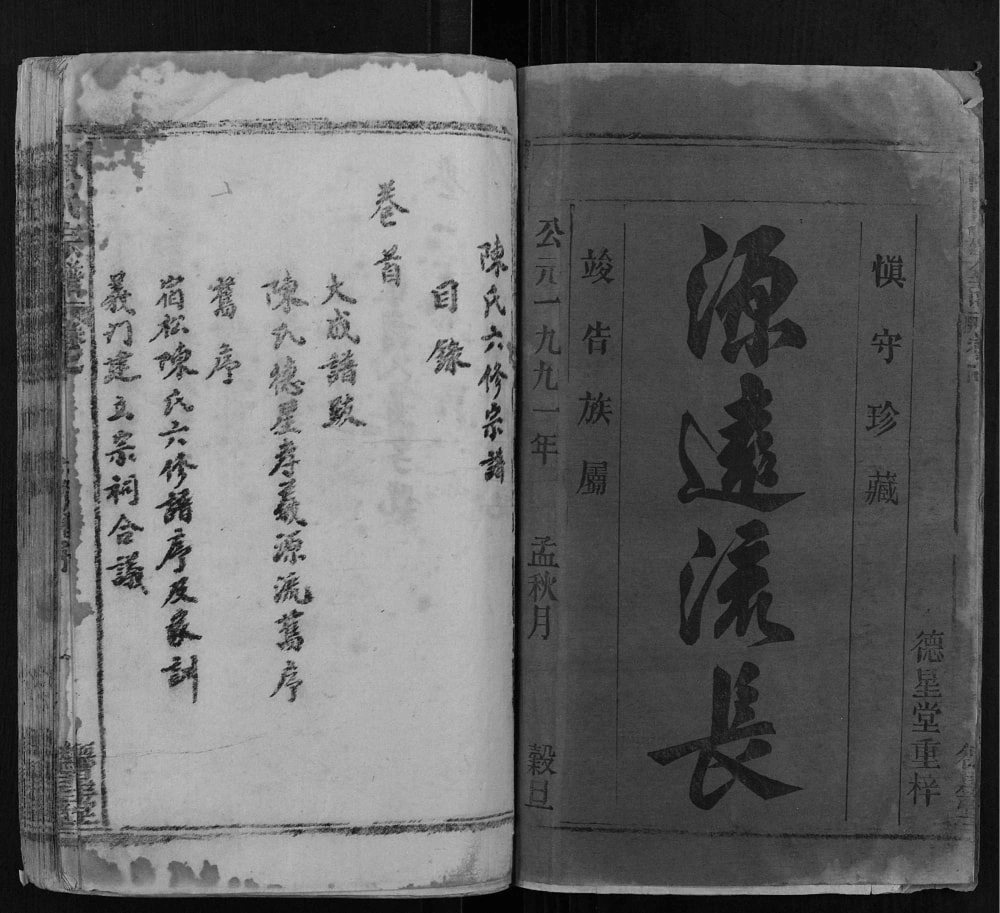 德星堂重梓
慎守珍藏
源遠流長
竣告族屬
公元一九九一年 孟秋月 穀旦
陳氏六修宗譜
目錄
卷首
大成譜跋
陳氏德星序義源流舊序
舊序
宿松陳氏六修譜序及家訓
義门建立宗祠合議